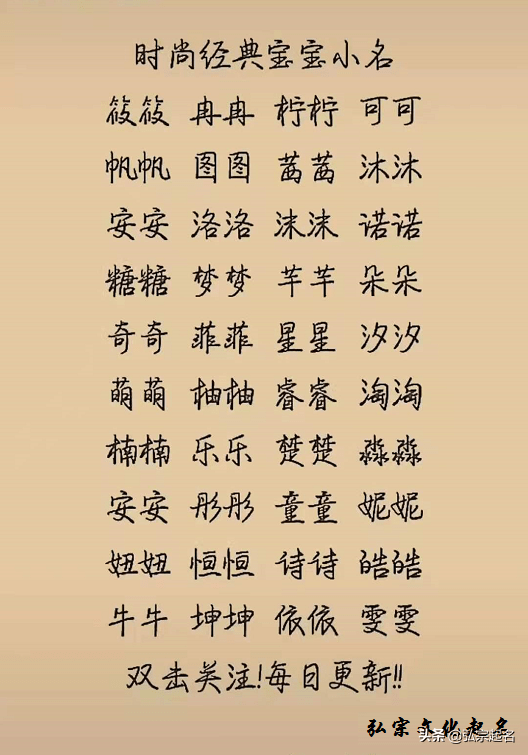 时尚经典宝宝小名
筱筱 冉冉 柠柠 可可
帆帆 图图 茜茜 沐沐
安安 洛洛 沫沫 诺诺
糖糖 梦梦 芊芊 朵朵
奇奇 菲菲 星星 汐汐
萌萌 柚柚 睿睿 淘淘
楠楠 乐乐 楚楚 淼淼
安安 彤彤 童童 妮妮
妞妞 恒恒 诗诗 皓皓
牛牛 坤坤 依依 雯雯
双击关注!每日更新!!
弘宗文化起名
头条 @弘宗起名